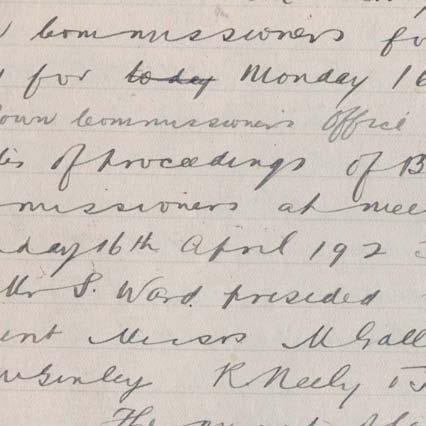 Commissioners fo
for to day Monday 16
own Commissioners Office
of proceedings of B
missioners at mee
day 16th April 192
Mr S. Ward presided
ent Messrs M Gall
Ginley R Neely
The